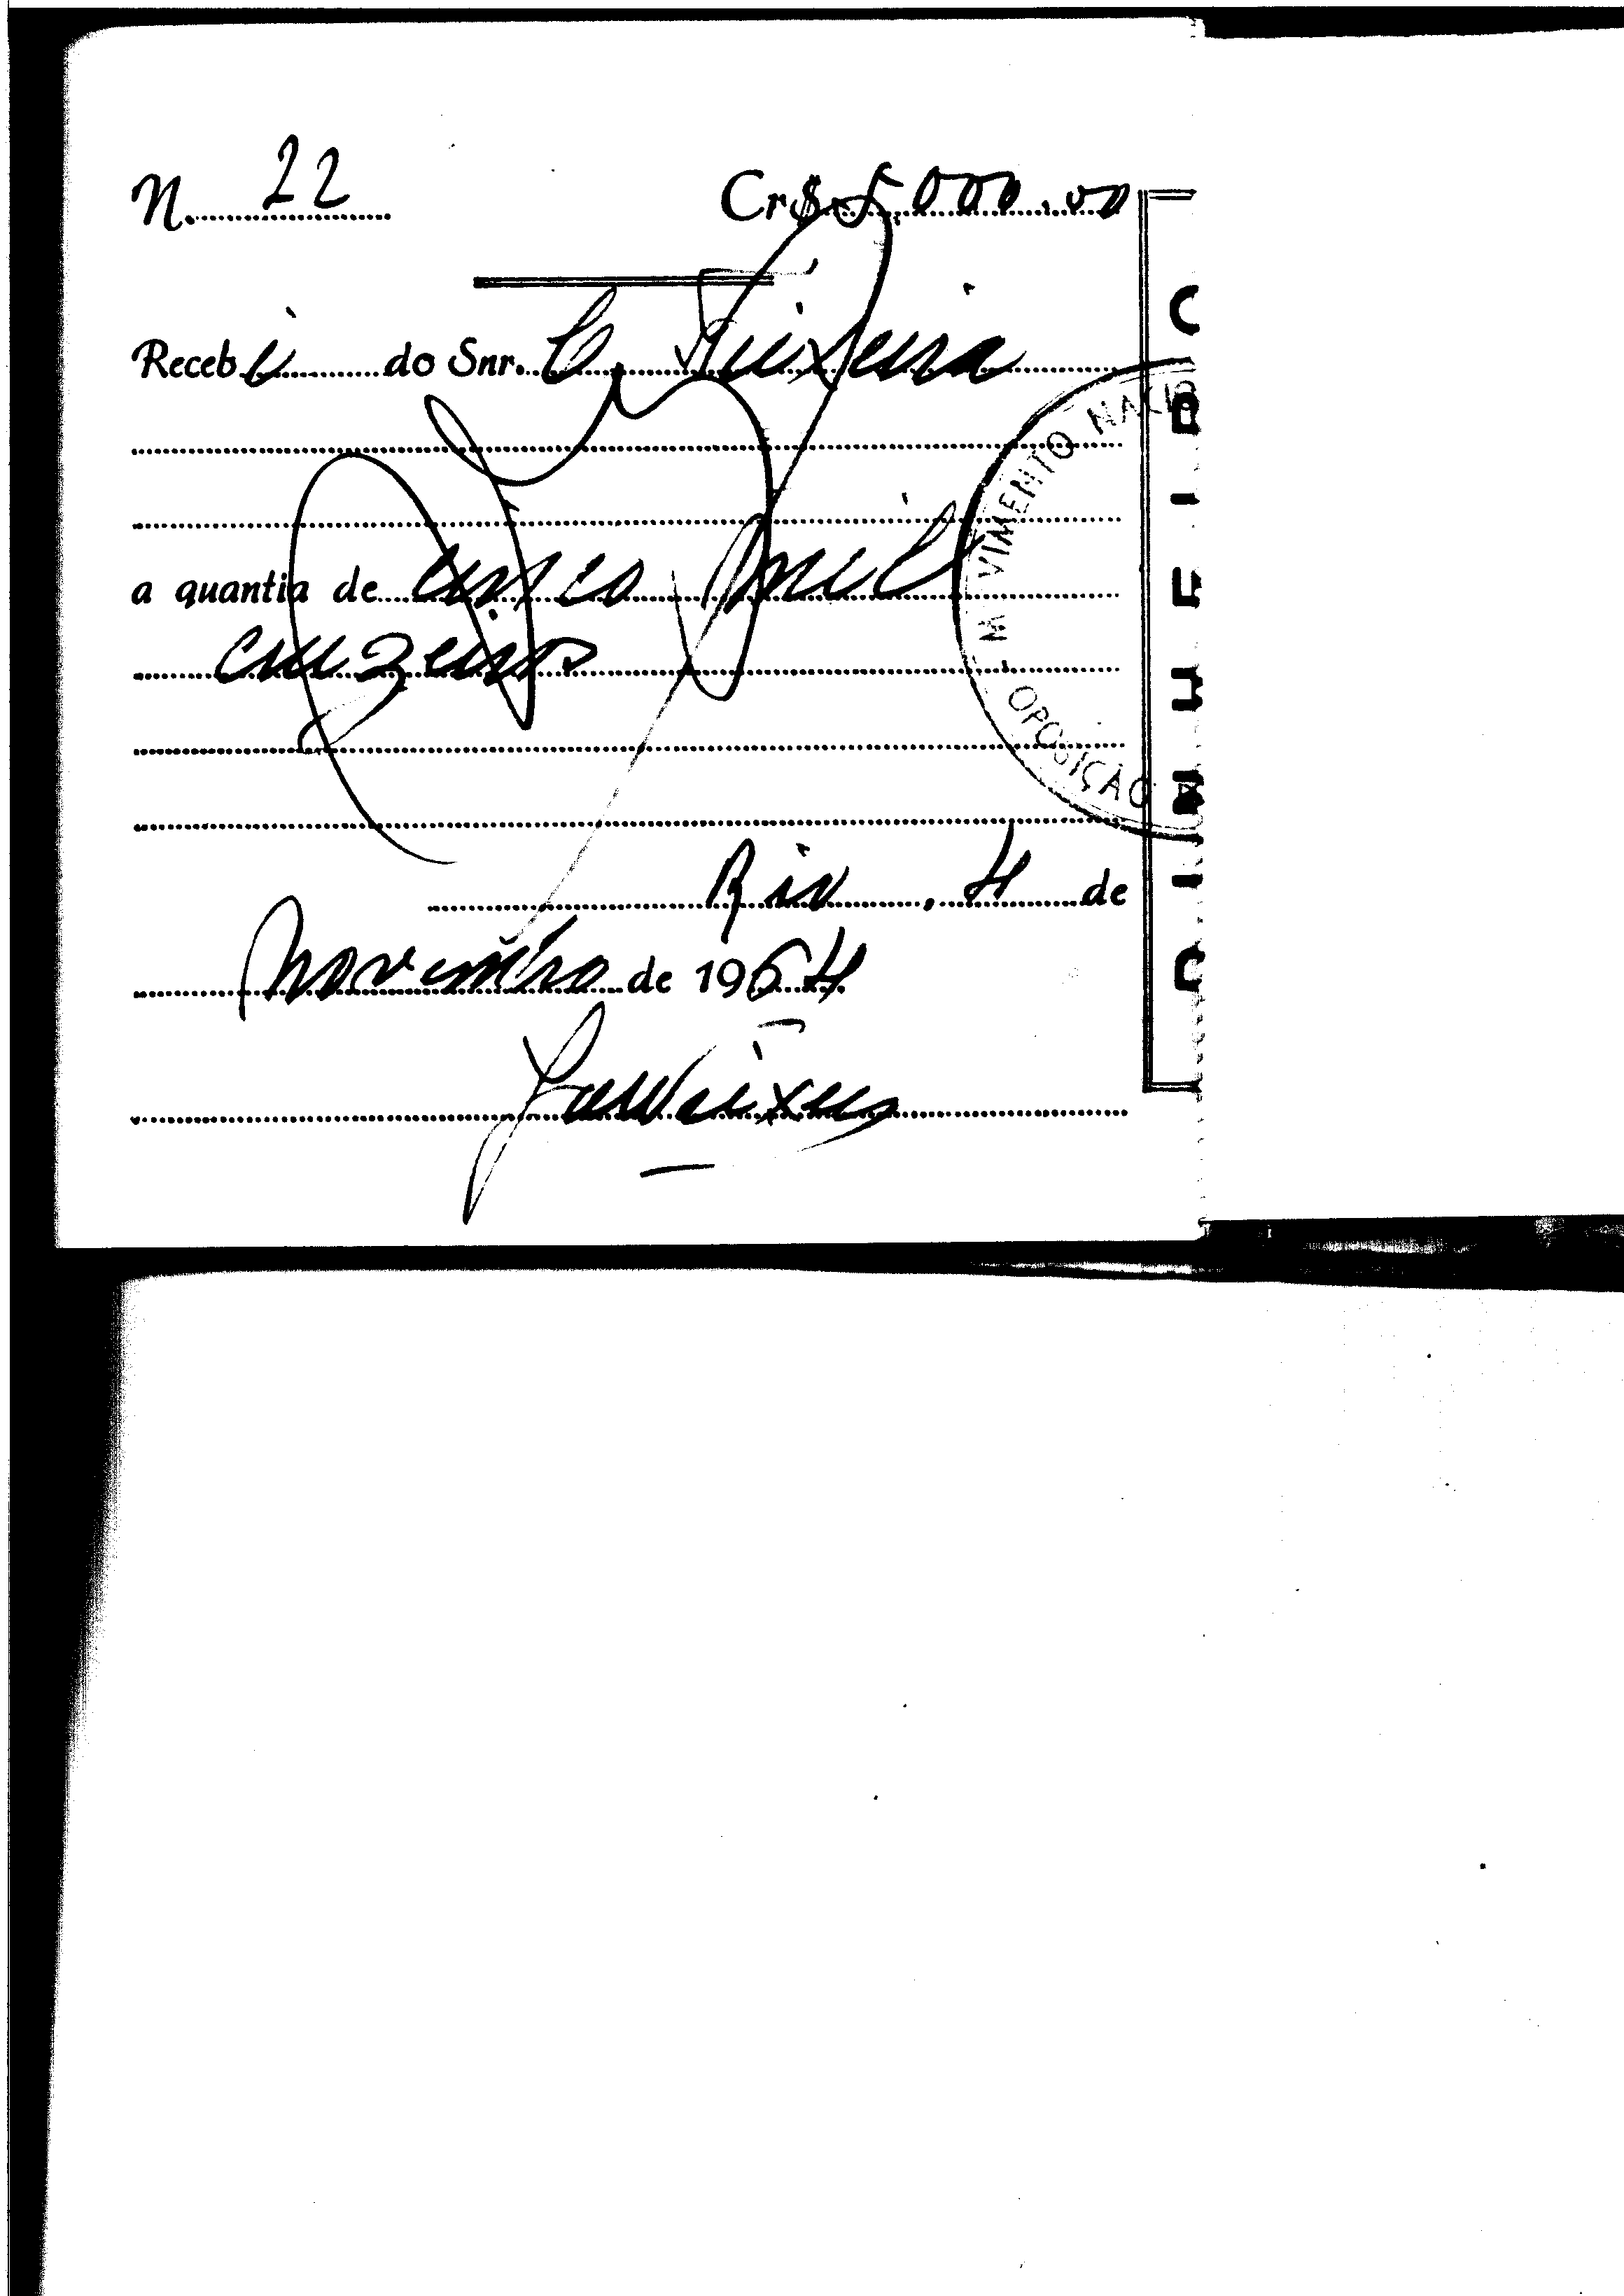 N. 22 Cr$ 5.000,00
Recebi do Snr. C. Teixeira
a quantia de cinco mil
cruzeiros
Rio, 4 de
novembro de 1964
MOVIMENTO NACIO
OPOSIÇÃO